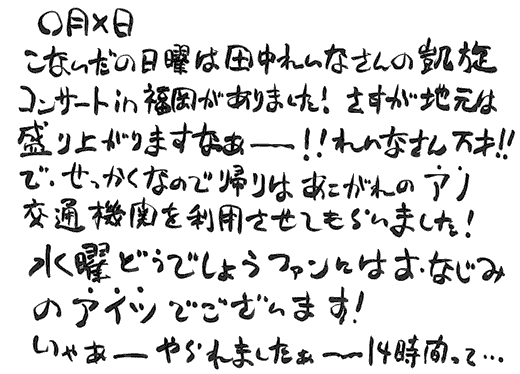 〇月×日
こないだの日曜は田中れいなさんの凱旋
コンサートin福岡がありました！さすが地元は
盛り上がりますなぁー！！れいなさん天才!!
で、せっかくなので帰りはあこがれのアノ
交通機関を利用させてもらいました！
水曜どうでしょうファンにはおなじみ
のアイツでございます！
いやぁーやられましたぁー14時間って…